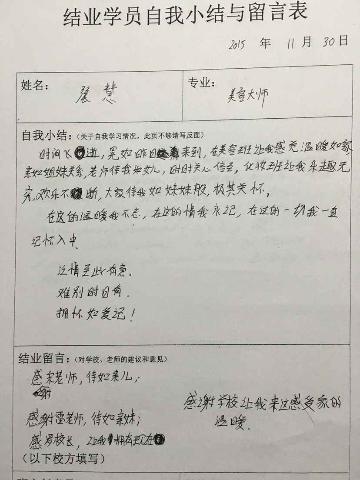 结业学员自我小结与留言表
2015 年 11 月 30 日
姓名: 慧 专业: 美容大师
自我小结:(关于自我学习情况,此页不够请写反面)
时间飞逝,晃如昨日来到,在美容班让我感觉温暖如家
亲如姐妹关系,老师待我如女儿,时时关心信去,化妆班让我乐趣无
穷,欢乐不断,大家待我如妹妹般,极其关怀。
在这的温暖我不忘,在这的情我永记,在这的一切我一直
记怀入中。
这情至此有意,
难别的日有,
拥怀如爱记!
结业留言:(对学校、老师的建议和意见)
感谢宋老师,待如亲儿;
感谢雷老师,待如亲妹;
感谢学校让我来这感受家的
温暖。
感 校长,让我拥有现在
(以下校方填写)